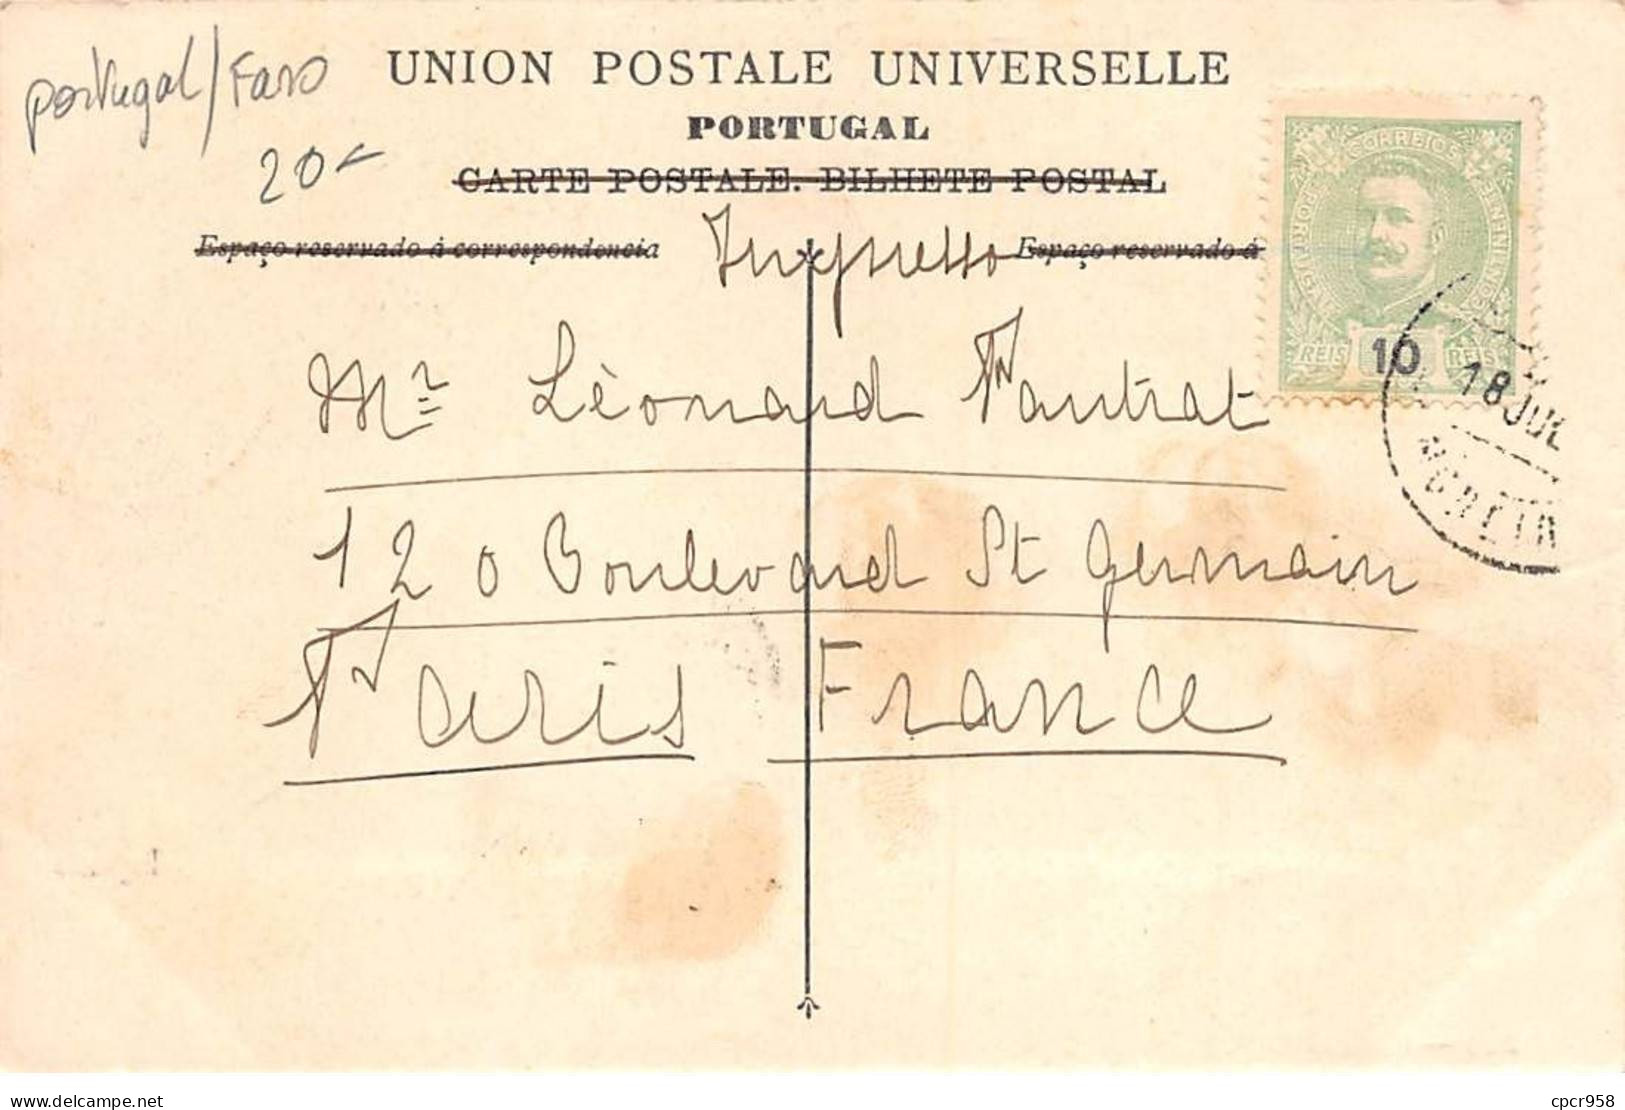 Portugal/Faro
20-
UNION POSTALE UNIVERSELLE
PORTUGAL
CARTE POSTALE. BILHETE POSTAL
Espaço reservado á correspondencia
Impresso
Espaço reservado á
CORREIOS
PORTUGAL
CONTINENTE
REIS 10 REIS
18 JUL
Mr Léonard Fautrat
120 Boulevard St Germain
Paris France
delcampe.net
cpcr958